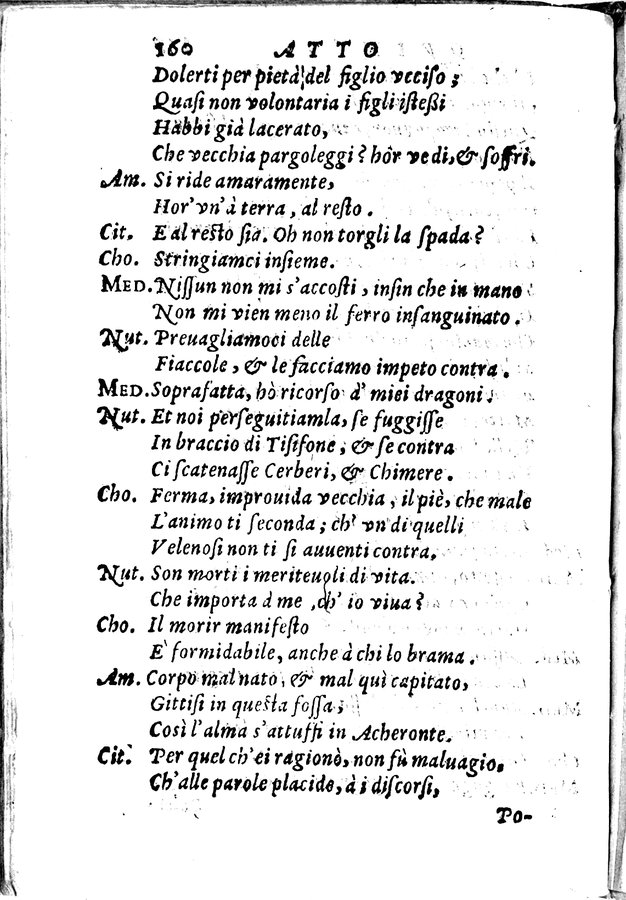 160 ATTO
Dolerti per pietà del figlio vcciſo;
Quaſi non volontaria i figli iſteßi
Habbi già lacerato,
Che vecchia pargoleggi? hor vedi, & ſoffri.
Am. Si ride amaramente,
Hor' vn' à terra, al reſto.
Cit. E al reſto ſia. Oh non torgli la ſpada?
Cho. Stringiamci inſieme.
MED. Niſſun non mi s'accoſti, inſin che in mano
Non mi vien meno il ferro inſanguinato.
Nut. Preuagliamoci delle
Fiaccole, & le facciamo impeto contra.
MED. Soprafatta, hò ricorſo d' miei dragoni.
Nut. Et noi perſeguitiamla, ſe fuggiſſe
In braccio di Tiſifone, & ſe contra
Ci ſcatenaſſe Cerberi, & Chimere.
Cho. Ferma, improuida vecchia, il piè, che male
L'animo ti ſeconda; ch' vn di quelli
Velenoſi non ti ſi auuenti contra,
Nut. Son morti i meriteuoli di vita.
Che importa à me, ch' io viua?
Cho. Il morir manifeſto
E' formidabile, anche à chi lo brama.
Am. Corpo mal nato, & mal quì capitato,
Gittiſi in queſta foſſa;
Così l'alma s'attuffi in Acheronte.
Cit. Per quel ch'ei ragionò, non fù maluagio.
Ch'alle parole placide, à i diſcorſi,
Po-